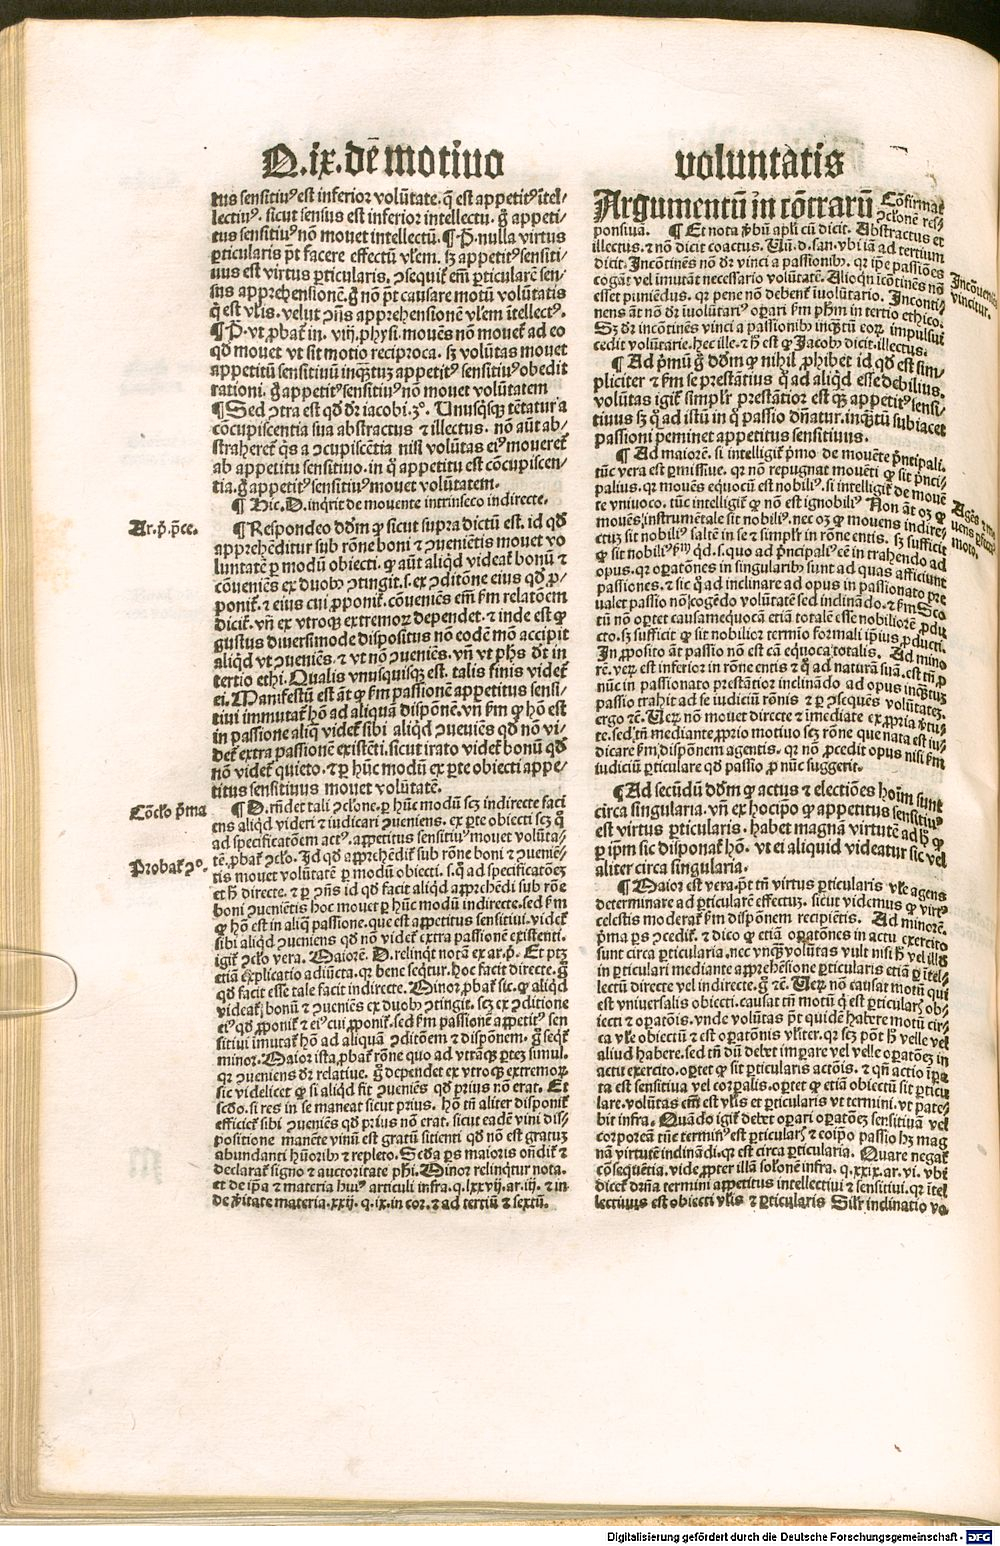 Q.ix.dē motiuo
tus sensitiuꝰ est inferior volūtate. q̄ est appetitꝰ ītel⸗
lectiuꝰ. sicut sensus est inferior intellectu. g̊ appeti⸗
tus sensitiuꝰ nō mouet intellectū. ¶ P. nulla virtus
ꝑticularis pōt facere effectū vlem. sꝫ appetitꝰ sensiti⸗
uus est virtus ꝑticularis, ꝯsequit̉ em̄ ꝑticularē sen⸗
sus apprehensionē. g̊ nō pōt causare motū volūtatis
q̄ est vlis. velut ꝯn̄s apprehensionē vlem itellectꝰ.
¶ P. vt ꝓbat̉ in. viij. physi. mouēs nō mouet̉ ad eo
qd̄ mouet vt sit motio reciproca. sꝫ volūtas mouet
appetitū sensitiuū inquātuꝫ appetitꝰ sensitiuꝰ obedit
rationi. g̊ appetitꝰ sensitiuꝰ nō mouet volūtatem
¶ Sed ꝯtra est qd̄ dr̄ iacobi. ȝꝰ. Unusq̇sqꝫ tētatur a
cōcupiscentia sua abstractus ⁊ illectus. nō aūt ab⸗
straheret̉ q̇s a ꝯcupiscētia nisi volūtas eiꝰ moueret̉
ab appetitu sensitiuo. in q̊ appetitu est cōcupiscen⸗
tia. g̊ appetitꝰ sensitiuꝰ mouet volūtatem.
¶ Hic. D. inq̇rit de mouente intrinseco indirecte.
Ar. p̄. p̄ce.
¶ Respondeo dd̄m ꝙ sicut supra dictū est. id qd̄
apprehēditur sub rōne boni ⁊ ꝯueniētis mouet vo
luntatē ꝑ modū obiecti. ꝙ aūt aliqd̄ videat̉ bonū ⁊
cōueniēs ex duobꝰ ꝯtingit. s. ex ꝯditōne eius qd̄ ꝓ⸗
ponit̉. ⁊ eius cui ꝓponit̉. cōueniēs em̄ ẜm relatōem
dicit̉. vn̄ ex vtroqꝫ extremoꝝ dependet. ⁊ inde est ꝙ
gustus diuersimode dispositus nō eodē mō accipit
aliqd̄ vt ꝯueniēs. ⁊ vt nō ꝯueniēs. vn̄ vt phūs dt̄ in
tertio ethi. Qualis vnusquisqꝫ est. talis finis videt̉
ei. Manifestū est āt ꝙ ẜm passionē appetitus sensi⸗
tiui immutat̉ hō ad aliquā disponē. vn̄ ẜm ꝙ hō est
in passione aliq̄ videt̉ sibi aliqd̄ ꝯueniēs qd̄ nō vi⸗
det̉ extra passionē existēti. sicut irato videt̉ bonū qd̄
nō videt̉ quieto. ⁊ ꝑ hūc modū ex ꝑte obiecti appe⸗
titus sensitiuus mouet volūtatē.
Cōclo p̄ma
¶ D. rn̄det tali ꝯclone. ꝑ hūc modū scꝫ indirecte faci
ens aliqd̄ videri ⁊ iudicari ꝯueniens. ex ꝑte obiecti scꝫ q̊
ad specificatōem actꝰ. appetitus sensitiuꝰ mouet volūta⸗
Probat̉ ꝯꝰ.
tē. ꝓbat̉ ꝯclo. Id qd̄ apprehēdit̉ sub rōne boni ⁊ ꝯueniē⸗
tis mouet volūtatē ꝑ modū obiecti. s. q̊ ad specificatōeꝫ
et ħ directe. ⁊ ꝑ ꝯn̄s id qd̄ facit aliqd̄ apprehēdi sub rōe
boni ꝯueniētis hoc mouet ꝑ hūc modū indirecte. sed ẜm
ꝙ hō est in aliq̄ passione. que est appetitus sensitiui. videt̉
sibi aliqd̄ ꝯueniens qd̄ nō videt̉ extra passionē existenti.
igit̉ ꝯclo vera. Maiorē. D. relinq̇t notā ex ar. p̄. Et ptꝫ
etiā explicatio adiūcta. qꝛ bene seq̇tur. hoc facit directe. g̊
qd̄ facit esse tale facit indirecte. Minor ꝓbat̉ sic. ꝙ aliqd̄
videat̉ bonū ⁊ ꝯueniēs ex duobꝰ ꝯtingit. scꝫ ex ꝯditione
eiꝰ qd̄ ꝓponit̉ ⁊ eiꝰ cui ꝓponit̉. sed ẜm passionē appetitꝰ sen
sitiui īmutat̉ hō ad aliquā ꝯditōem ⁊ disponem. g̊ seqt̉
minor. Maior ista ꝓbat̉ rōne quo ad vtrāqꝫ ꝑteꝫ simul.
qꝛ ꝯueniens dr̄ relatiue. g̊ dependet ex vtroqꝫ extremoꝝ
sic videlicet ꝙ si aliqd̄ fit ꝯueniēs qd̄ prius nō erat. Et
scdo. si res in se maneat sicut prius. hō tn̄ aliter disponit̉
efficiet̉ sibi ꝯueniēs qd̄ prius nō erat. sicut eadē vini dis⸗
positione manēte vinū est gratū sitienti qd̄ nō est gratuꝫ
abundanti hūoribꝰ ⁊ repleto. Scd̄a ꝑs maioris ondit̉ ⁊
declarat̉ signo ⁊ auctoritate phi. Minor relinq̇tur nota.
et de ip̄a ⁊ materia huiꝰ articuli infra. q. lxxvij. ar. iij. ⁊ in
de v̄itate materia. xxij. q. ix. in cor. ⁊ ad tertiū ⁊ sextū.
voluntatis
Argumentū in cōtrarū Cōfirmat
ꝯclonē res⸗
ponsiua. ¶ Et nota v̄bū apl̄i cū dicit. Abstractus et
illectus. ⁊ nō dicit coactus. Un̄. d. san. vbi iā ad tertium
dicit. Incōtinēs nō dr̄ vinci a passionibꝰ. qꝛ ip̄e passiōes
cogāt vel imutāt necessario volūtatē. Alioq̇n icōtinēs nō
esset puniēdus. qꝛ pene nō debent̉ iuolūtario. Inconti⸗
nens āt nō dr̄ iuolūtariꝰ opari ẜm phm̄ in tertio ethico.
Sꝫ dr̄ incōtinēs vinci a passionibꝰ inqūtū eoꝝ impulsui
cedit volūtarie. hec ille. ⁊ ħ est ꝙ Jacobꝰ dicit. illectus.
Incōueniēs
vincitur.
¶ Ad p̄mū g̊ dd̄m ꝙ nihil ꝓhibet id qd̄ est sim⸗
pliciter ⁊ ẜm se prestātius q̊ ad aliqd̄ esse debilius.
volūtas igit̉ simplr̄ prestātior est qꝫ appetitꝰ sensi⸗
tiuus sꝫ q̊ ad istū in q̊ passio dn̄atur. inquātū subiacet
passioni p̄eminet appetitus sensitiuus.
¶ Ad maiorē. si intelligit̉ p̄mo de mouēte p̄ntipali.
tūc vera est ꝑmissiue. qꝛ nō repugnat mouēti ꝙ sit p̄nci⸗
palius. qꝛ mouēs equocū est nobiliꝰ. si intelligit̉ de mouē
te vniuoco. tūc intelligit̉ ꝙ nō est ignobiliꝰ Non āt oꝫ ꝙ
mouēs instrumētale sit nobiliꝰ. nec oꝫ ꝙ mouens indire⸗
ctuꝫ sit nobiliꝰ saltē in se ⁊ simplr̄ in rōne entis. sꝫ sufficit
ꝙ sit nobiliꝰ ẜm qd̄. s. quo ad p̄ncipaliꝰ eē in trahendo ad
opus. qꝛ oꝑatōnes in singularibꝰ sunt ad quas afficiunt
passiones. ⁊ sic q̊ ad inclinare ad opus in passionato pre
ualet passio nō cogēdo volūtatē sed inclinādo. ⁊ ẜm Sco
tū nō oꝑtet causam equocā etiā totalē esse nobiliorē ꝓdu
cto. sꝫ sufficit ꝙ sit nobilior termīo formali ip̄ius ꝓducti.
In ꝓposito āt passio nō est cā equoca totalis. Ad mino
rē. veꝝ est inferior in rōne entis ⁊ q̊ ad naturā suā. est tn̄ ꝓ
nūc in passionato prestātior inclinādo ad opus inqꝫtuꝫ
passio trahit ad se iudiciū rōnis ⁊ ꝑ ꝯsequēs volūtateꝫ.
ergo ⁊c̄. Ueꝝ nō mouet directe ⁊ imediate ex ꝓpria v̄tu⸗
te. sed tn̄ mediante ꝓprio motiuo scꝫ rōne que nata est iu⸗
dicare ẜm disponem agentis. qꝛ nō ꝓcedit opus nisi ẜm
iudiciū ꝑticulare qd̄ passio ꝓ nūc suggerit.
¶ Ad secūdū dd̄m ꝙ actus ⁊ electiōes hoīm sunt
circa singularia. vn̄ ex hoc ip̄o ꝙ appetitus sensitiuꝰ
est virtus ꝑticularis. habet magnā virtutē ad ħ ꝙ
ꝑ ip̄m sic disponat̉ hō. vt ei aliquid videatur sic vel
aliter circa singularia.
¶ Maior est vera. pōt tn̄ virtus ꝑticularis vle agens
determinare ad ꝑticularē effectuꝫ. sicut videmus ꝙ virtꝰ
celestis moderat̉ ẜm disponem recipiētis. Ad minorē.
p̄ma ꝑs ꝯcedit̉. ⁊ dico ꝙ etiā oꝑatōnes in actu exercito
sunt circa ꝑticularia. nec vnqꝫ volūtas vult nisi ħ vel illd̄
in ꝑticulari mediante apprehēsione ꝑticularis etiā ꝑ itel⸗
lectū directe vel indirecte. g̊ ⁊c̄. Ueꝝ nō causat motū qui
est vniuersalis obiecti. causat tn̄ motū q̇ est ꝑticularꝭ ob⸗
iecti ⁊ oꝑatōis. vnde volūtas pōt quidē habere motū cir⸗
ca vle obiectū ⁊ est oꝑatōnis vlr̄iter. qꝛ scꝫ pōt ħ velle vel
aliud habere. sed tn̄ dū debet imꝑare vel velle oꝑatōeꝫ in
actu exercito. oꝑtet ꝙ sit ꝑticularis actōis. ⁊ qn̄ actio ip̄a
ta est sensitiua vel corꝑalis. oꝑtet ꝙ etiā obiectū sit ꝑticu
lare. volūtas em̄ est vlis et ꝑticularis vt termini. vt pate⸗
bit infra. Quādo igit̉ debet oꝑari oꝑatōeꝫ sensitiuā vel
corporeā tūc terminꝰ est ꝑticularꝭ ⁊ coip̄o passio hꝫ mag
nā virtutē inclinādi. qꝛ est circa ꝑticularia. Quare negat̉
cōsequētia. vide ꝓpter illā solonē infra. q. xxix. ar. vi. vbi
dicet̉ dr̄na termini appetitus intellectiui ⁊ sensitiui. qꝛ itel
lectiuus est obiecti vlis ⁊ ꝑticularis Silr̄ inclinatio vo
Digitalisierung gefördert durch die Deutsche Forschungsgemeinschaft - DFG